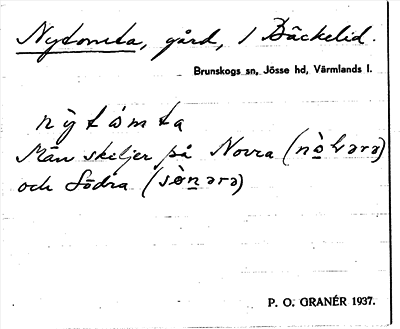 Nytomta, gård, 1 Bäckelid.
Brunskogs sn, Jösse hd, Värmlands l.
nỳtàmta
Man skiljer på Norra (nò̠ɽərə)
och Södra (sø̀n̠ərə)
P. O. GRANÉR 1937.